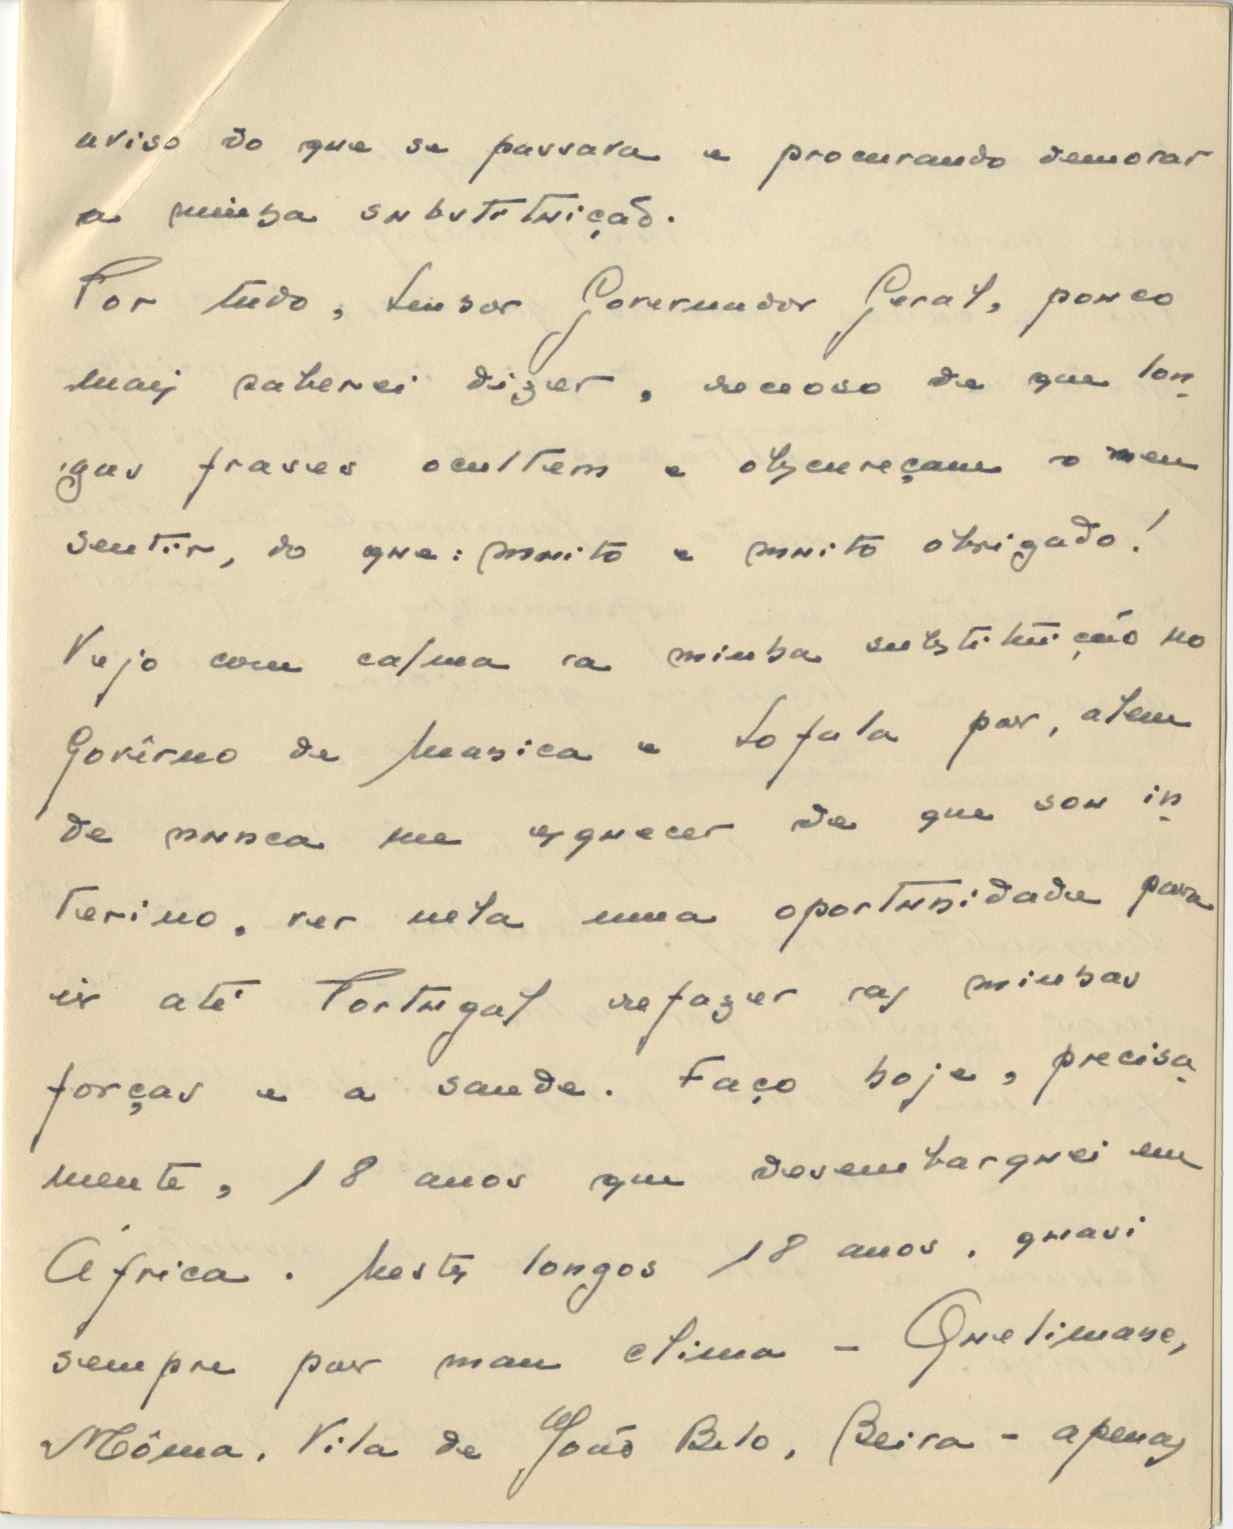 aviso do que se passava e procurando demorar
a minha substituição.
Por tudo, Senhor Governador Geral, pouco
mais saberei dizer, receoso de que lon-
gas frases ocultem e obscureçam o meu
sentir, do que: muito e muito obrigado!
Vejo com calma a minha substituição no
Govêrno de Manica e Sofala por, alem
de nunca me esquecer de que sou in-
terino, ver nela uma oportunidade para
ir até Portugal refazer as minhas
forças e a saude. Faço hoje, precisa-
mente, 18 anos que desembarquei em
África. Nestes longos 18 anos, quasi
sempre por mau clima - Quelimane,
Môma, Vila de João Belo, Beira - apenas